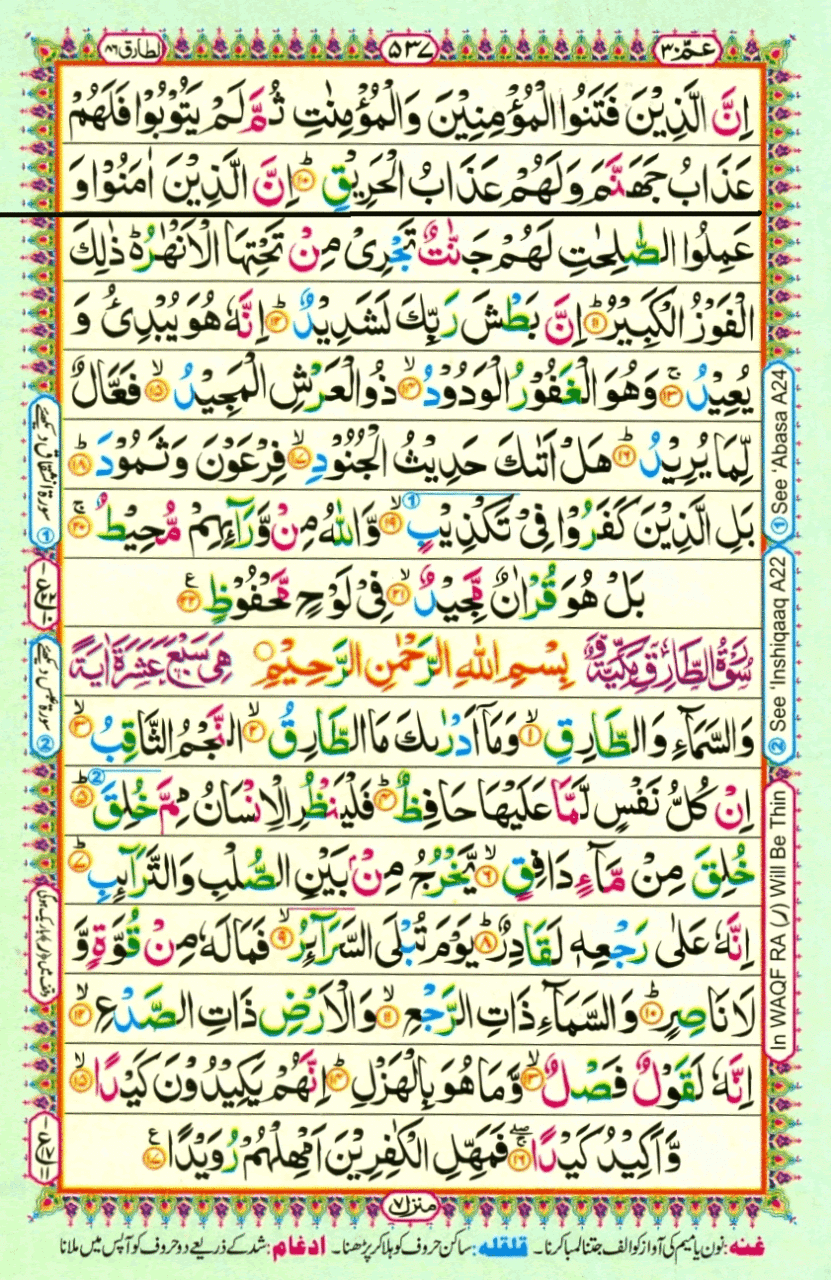 عمّ ٣٠
٥٣٧
الطارق ٨٦
اِنَّ الَّذِيْنَ فَتَنُوا الْمُؤْمِنِيْنَ وَالْمُؤْمِنٰتِ ثُمَّ لَمْ يَتُوْبُوْا فَلَهُمْ
عَذَابُ جَهَنَّمَ وَلَهُمْ عَذَابُ الْحَرِيْقِ ؕ ﴿۱۰﴾ اِنَّ الَّذِيْنَ اٰمَنُوْا وَ
عَمِلُوا الصّٰلِحٰتِ لَهُمْ جَنّٰتٌ تَجْرِيْ مِنْ تَحْتِهَا الْاَنْهٰرُ ؕ ذٰلِكَ
الْفَوْزُ الْكَبِيْرُ ؕ ﴿۱۱﴾ اِنَّ بَطْشَ رَبِّكَ لَشَدِيْدٌ ؕ ﴿۱۲﴾ اِنَّهٗ هُوَ يُبْدِئُ وَ
يُعِيْدُ ۚ ﴿۱۳﴾ وَهُوَ الْغَفُوْرُ الْوَدُوْدُ ۙ ﴿۱۴﴾ ذُو الْعَرْشِ الْمَجِيْدُ ۙ ﴿۱۵﴾ فَعَّالٌ
لِّمَا يُرِيْدُ ؕ ﴿۱۶﴾ هَلْ اَتٰىكَ حَدِيْثُ الْجُنُوْدِ ۙ ﴿۱۷﴾ فِرْعَوْنَ وَثَمُوْدَ ؕ ﴿۱۸﴾
بَلِ الَّذِيْنَ كَفَرُوْا فِيْ تَكْذِيْبٍ ۙ ① ﴿۱۹﴾ وَّاللّٰهُ مِنْ وَّرَآئِهِمْ مُّحِيْطٌ ۚ ﴿۲۰﴾
بَلْ هُوَ قُرْاٰنٌ مَّجِيْدٌ ۙ ﴿۲۱﴾ فِيْ لَوْحٍ مَّحْفُوْظٍ ﴿۲۲﴾ ع
سُوْرَةُ الطَّارِقِ مَكِّيَّةٌ وَّ بِسْمِ اللهِ الرَّحْمٰنِ الرَّحِيْمِ هِيَ سَبْعَ عَشَرَةَ اٰيَةً
وَالسَّمَآءِ وَالطَّارِقِ ۙ ﴿۱﴾ وَمَاۤ اَدْرٰىكَ مَا الطَّارِقُ ۙ ﴿۲﴾ النَّجْمُ الثَّاقِبُ ۙ ﴿۳﴾
اِنْ كُلُّ نَفْسٍ لَّمَّا عَلَيْهَا حَافِظٌ ؕ ﴿۴﴾ فَلْيَنْظُرِ الْاِنْسَانُ مِمَّ خُلِقَ ؕ ② ﴿۵﴾
خُلِقَ مِنْ مَّآءٍ دَافِقٍ ۙ ﴿۶﴾ يَّخْرُجُ مِنْۢ بَيْنِ الصُّلْبِ وَالتَّرَآئِبِ ؕ ﴿۷﴾
اِنَّهٗ عَلٰى رَجْعِهٖ لَقَادِرٌ ؕ ﴿۸﴾ يَوْمَ تُبْلَى السَّرَآئِرُ ۙ ﴿۹﴾ فَمَا لَهٗ مِنْ قُوَّةٍ وَّ
لَا نَاصِرٍ ؕ ﴿۱۰﴾ وَالسَّمَآءِ ذَاتِ الرَّجْعِ ۙ ﴿۱۱﴾ وَالْاَرْضِ ذَاتِ الصَّدْعِ ۙ ﴿۱۲﴾
اِنَّهٗ لَقَوْلٌ فَصْلٌ ۙ ﴿۱۳﴾ وَّمَا هُوَ بِالْهَزْلِ ؕ ﴿۱۴﴾ اِنَّهُمْ يَكِيْدُوْنَ كَيْدًا ۙ ﴿۱۵﴾
وَّاَكِيْدُ كَيْدًا ۖۚ ﴿۱۶﴾ فَمَهِّلِ الْكٰفِرِيْنَ اَمْهِلْهُمْ رُوَيْدًا ﴿۱۷﴾ ع
① See 'Abasa A24
② See 'Inshiqaaq A22
In WAQF RA (ر) Will Be Thin
① سورة انشقاق دیکھئے
② سورة عبس دیکھئے
منزل ٧
غنه: نون یا میم کی آواز کو الف جتنا لمبا کرنا۔ قلقله: ساکن حروف کو ہلا کر پڑھنا۔ ادغام: شد کے ذریعے دو حروف کو آپس میں ملانا